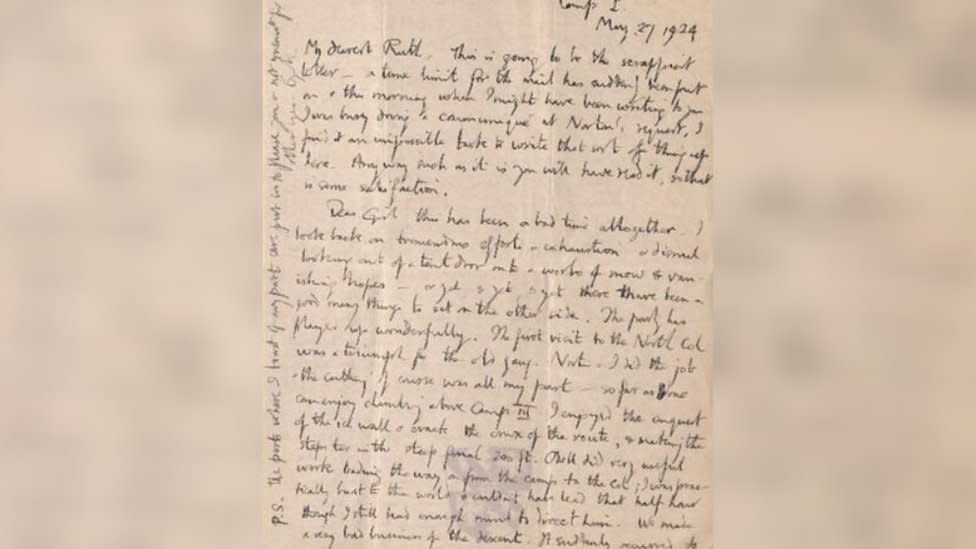 Camp I.
May 27 1924
My dearest Ruth, This is going to be the scrappiest
letter — a time limit for the mail has suddenly been put
on & this morning when I might have been writing to you
I was busy doing a communiqué at Norton's request, I
find it an impossible task to write that sort of thing up
here. Anyway such as it is you will have read it, so that
is some satisfaction.
Dear Girl this has been a bad time altogether. I
look back on tremendous efforts & exhaustion & dismal
looking out of a tent door onto a world of snow & van-
ishing hopes — & yet, & yet, & yet there have been a
good many things to set on the other side. The party has
played up wonderfully. The first visit to the North Col
was a triumph for the old gang. Norton & I did the job
& the cutting of course was all my part — so far as one
can enjoy climbing above Camp III I enjoyed the conquest
of the ice wall & crack the crux of the route, & making the
steps too in the steep final 200 ft. Odell did very useful
work leading the way on from the camp to the Col; I was prac-
tically bust to the world & couldn't have lead that half hour
though I still had enough mind to direct him. We made
a very bad business of the descent. It suddenly occurred to
P.S. The parts where I boast of my part are put in to please you & not meant for
other eyes